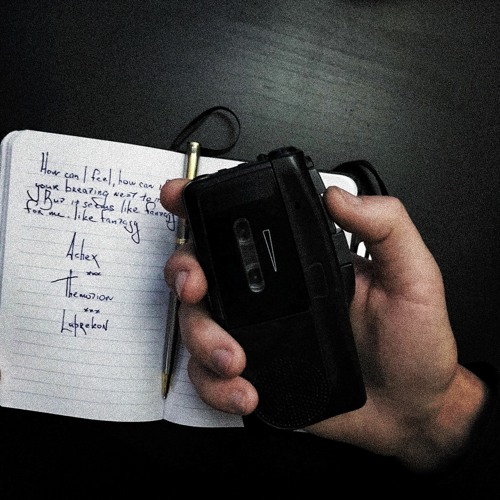 How can I feel, how can
your breazing next to
But it seems like fantasy
for me.. like fantasy
Achex
***
Themotion
***
Luprekon